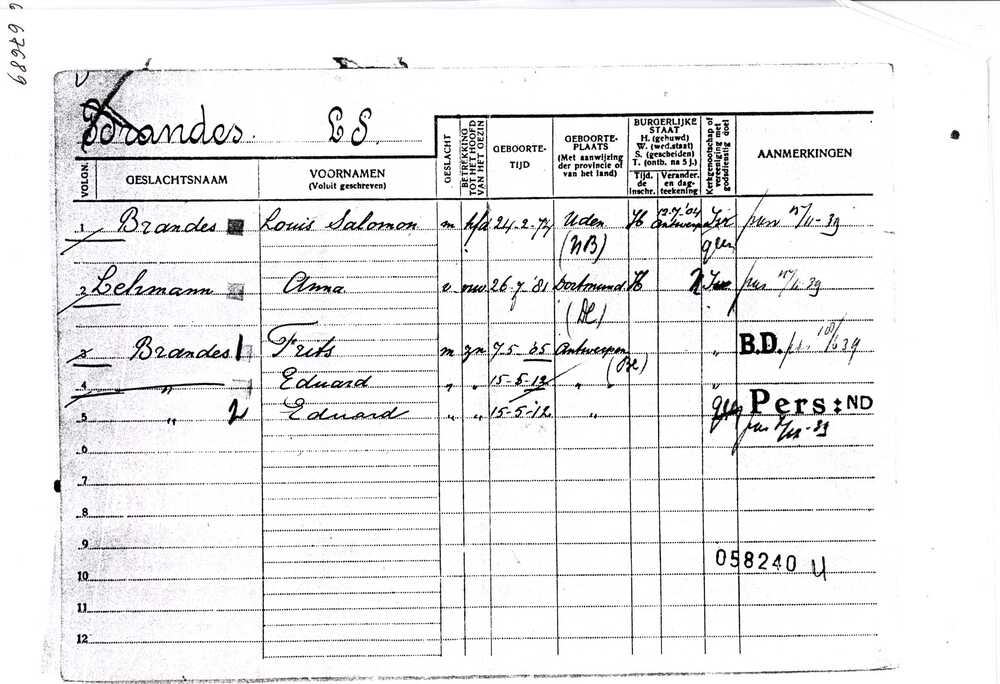 67689
Brandes. L S.
VOLGN.
GESLACHTSNAAM
VOORNAMEN
(Voluit geschreven)
GESLACHT
BETREKKING TOT HET HOOFD VAN HET GEZIN
GEBOORTE-
TIJD
GEBOORTE-
PLAATS
(Met aanwijzing
der provincie of
van het land)
BURGERLIJKE
STAAT
H. (gehuwd)
W. (wed.staat)
S. (gescheiden)
T. (ontb. na 5 j.)
Tijd.
de
inschr.
Verander.
en dag-
teekening
Kerkgenootschap of vereeniging met godsdienstig doel
AANMERKINGEN
12-7-'04
1 Brandes Louis Salomon m hfd 24-2-'74 Uden H Antwerpen
(NB) geen
2 Lehmann Anna v vrw 26-7-'81 Dortmund H
(Dl)
3 Brandes 1 Frits m zn 7-5-'05 Antwerpen „ B.D.
(Be)
4 „ Eduard „ „ 15-5-12 „ „
5 „ 2 Eduard „ „ 15-5-'12 „ geen Pers: ND
6
7
8
9
058240 U
10
11
12